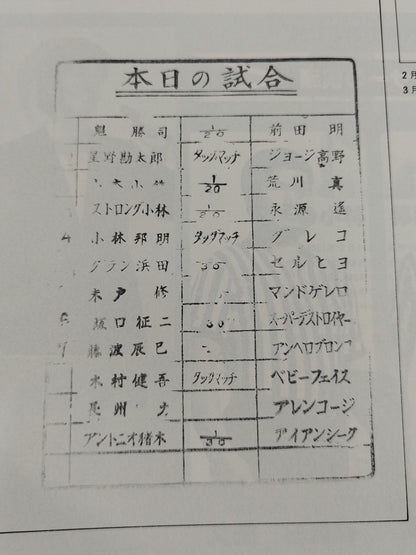 2月
3月
本日の試合
魁勝司 1/20 前田明
星野勘太郎 タッグマッチ ジョージ高野
小林 1/20 荒川真
ストロング小林 1/20 永源遥
4 小林邦明 タッグマッチ グレコ
グラン浜田 30 セルヒヨ
木戸修 マンドゲレロ
6 坂口征二 スーパーデストロイヤー
7 藤波辰巳 アンヘロブランコ
木村健吾 タッグマッチ ベビーフェイス
長州 アレンコージ
アントニオ猪木 1/30 アイアンシーク